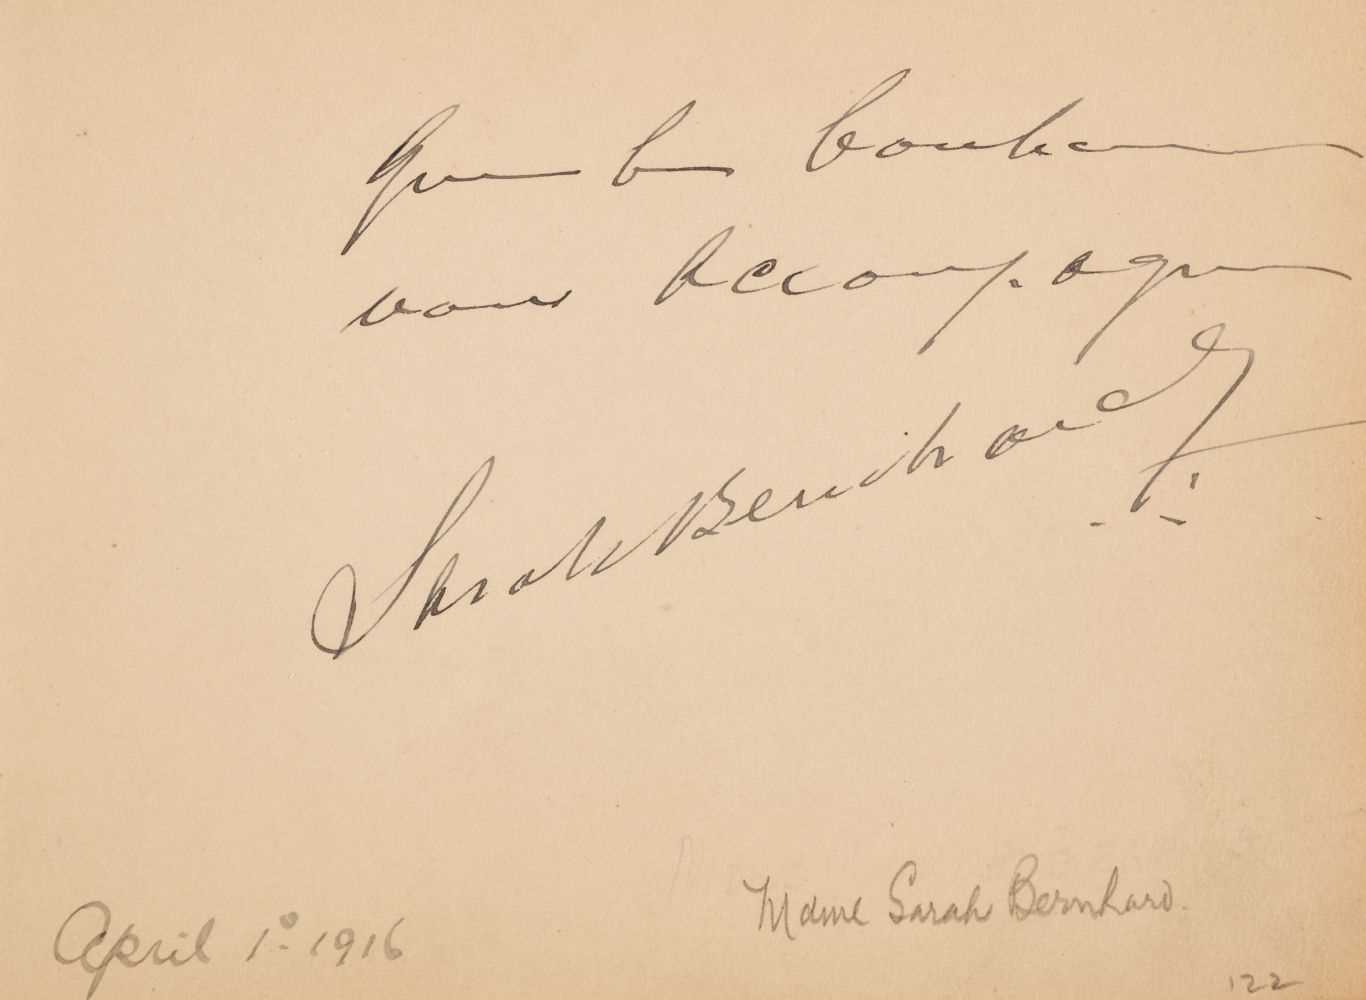 Que le bonheur
vous accompagne
Sarah Bernhardt
Mdme Sarah Bernhard.
April 1º 1916
122